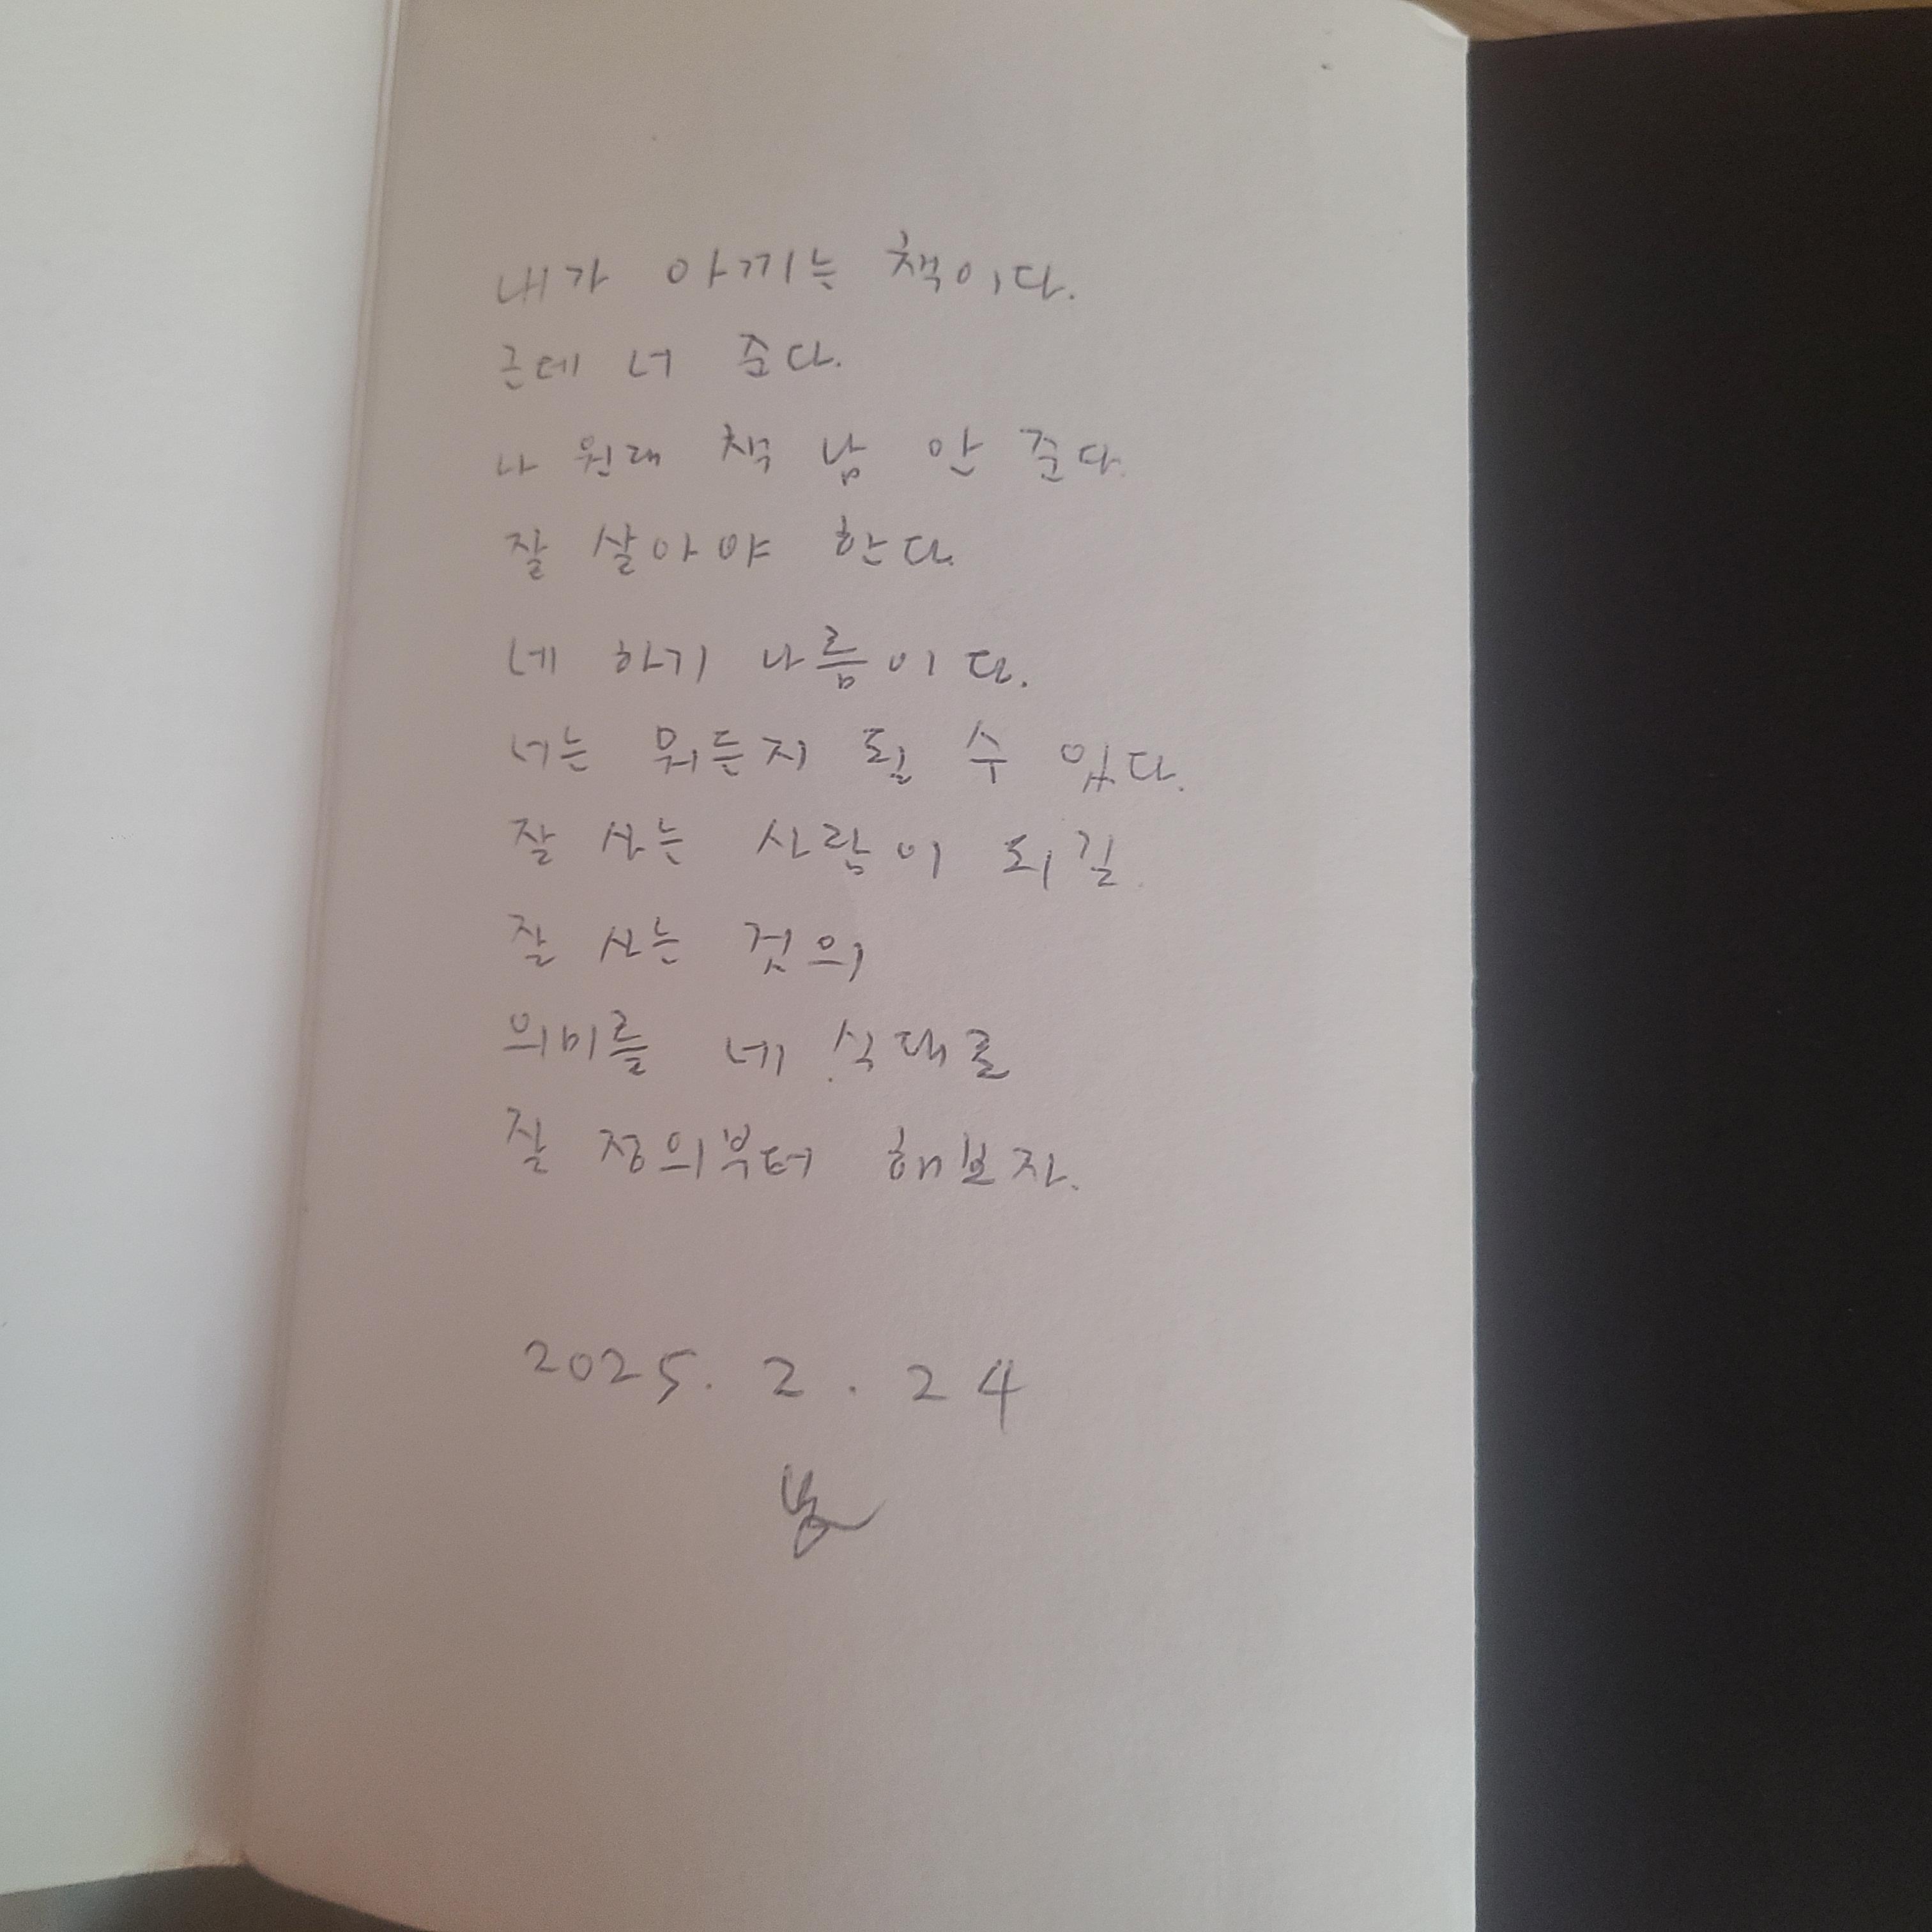 내가 아끼는 책이다.
근데 너 준다.
나 원래 책 남 안 준다.
잘 살아야 한다.
네 하기 나름이다.
너는 뭐든지 될 수 있다.
잘 사는 사람이 되길.
잘 사는 것의
의미를 네 식대로
잘 정의부터 해보자.
2025. 2. 24